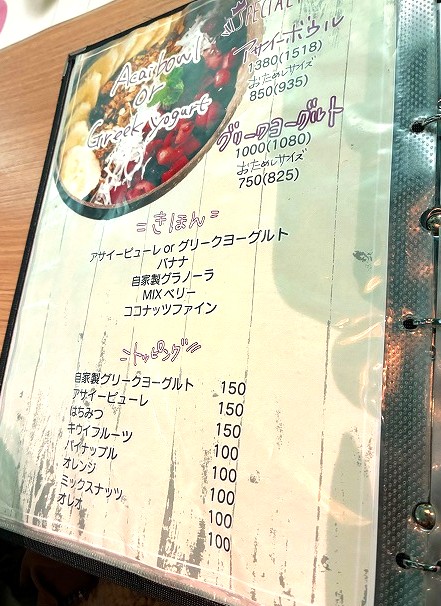 SPECIAL
Acaibowl
or
Greek yogurt
アサイーボウル
1380(1518)
おためしサイズ
850(935)
グリークヨーグルト
1000(1080)
おためしサイズ
750(825)
=きほん=
アサイーピューレ or グリークヨーグルト
バナナ
自家製グラノーラ
MIXベリー
ココナッツファイン
トッピング
自家製グリークヨーグルト 150
アサイーピューレ 150
はちみつ 150
キウイフルーツ 100
パイナップル 100
オレンジ 100
ミックスナッツ 100
オレオ 100